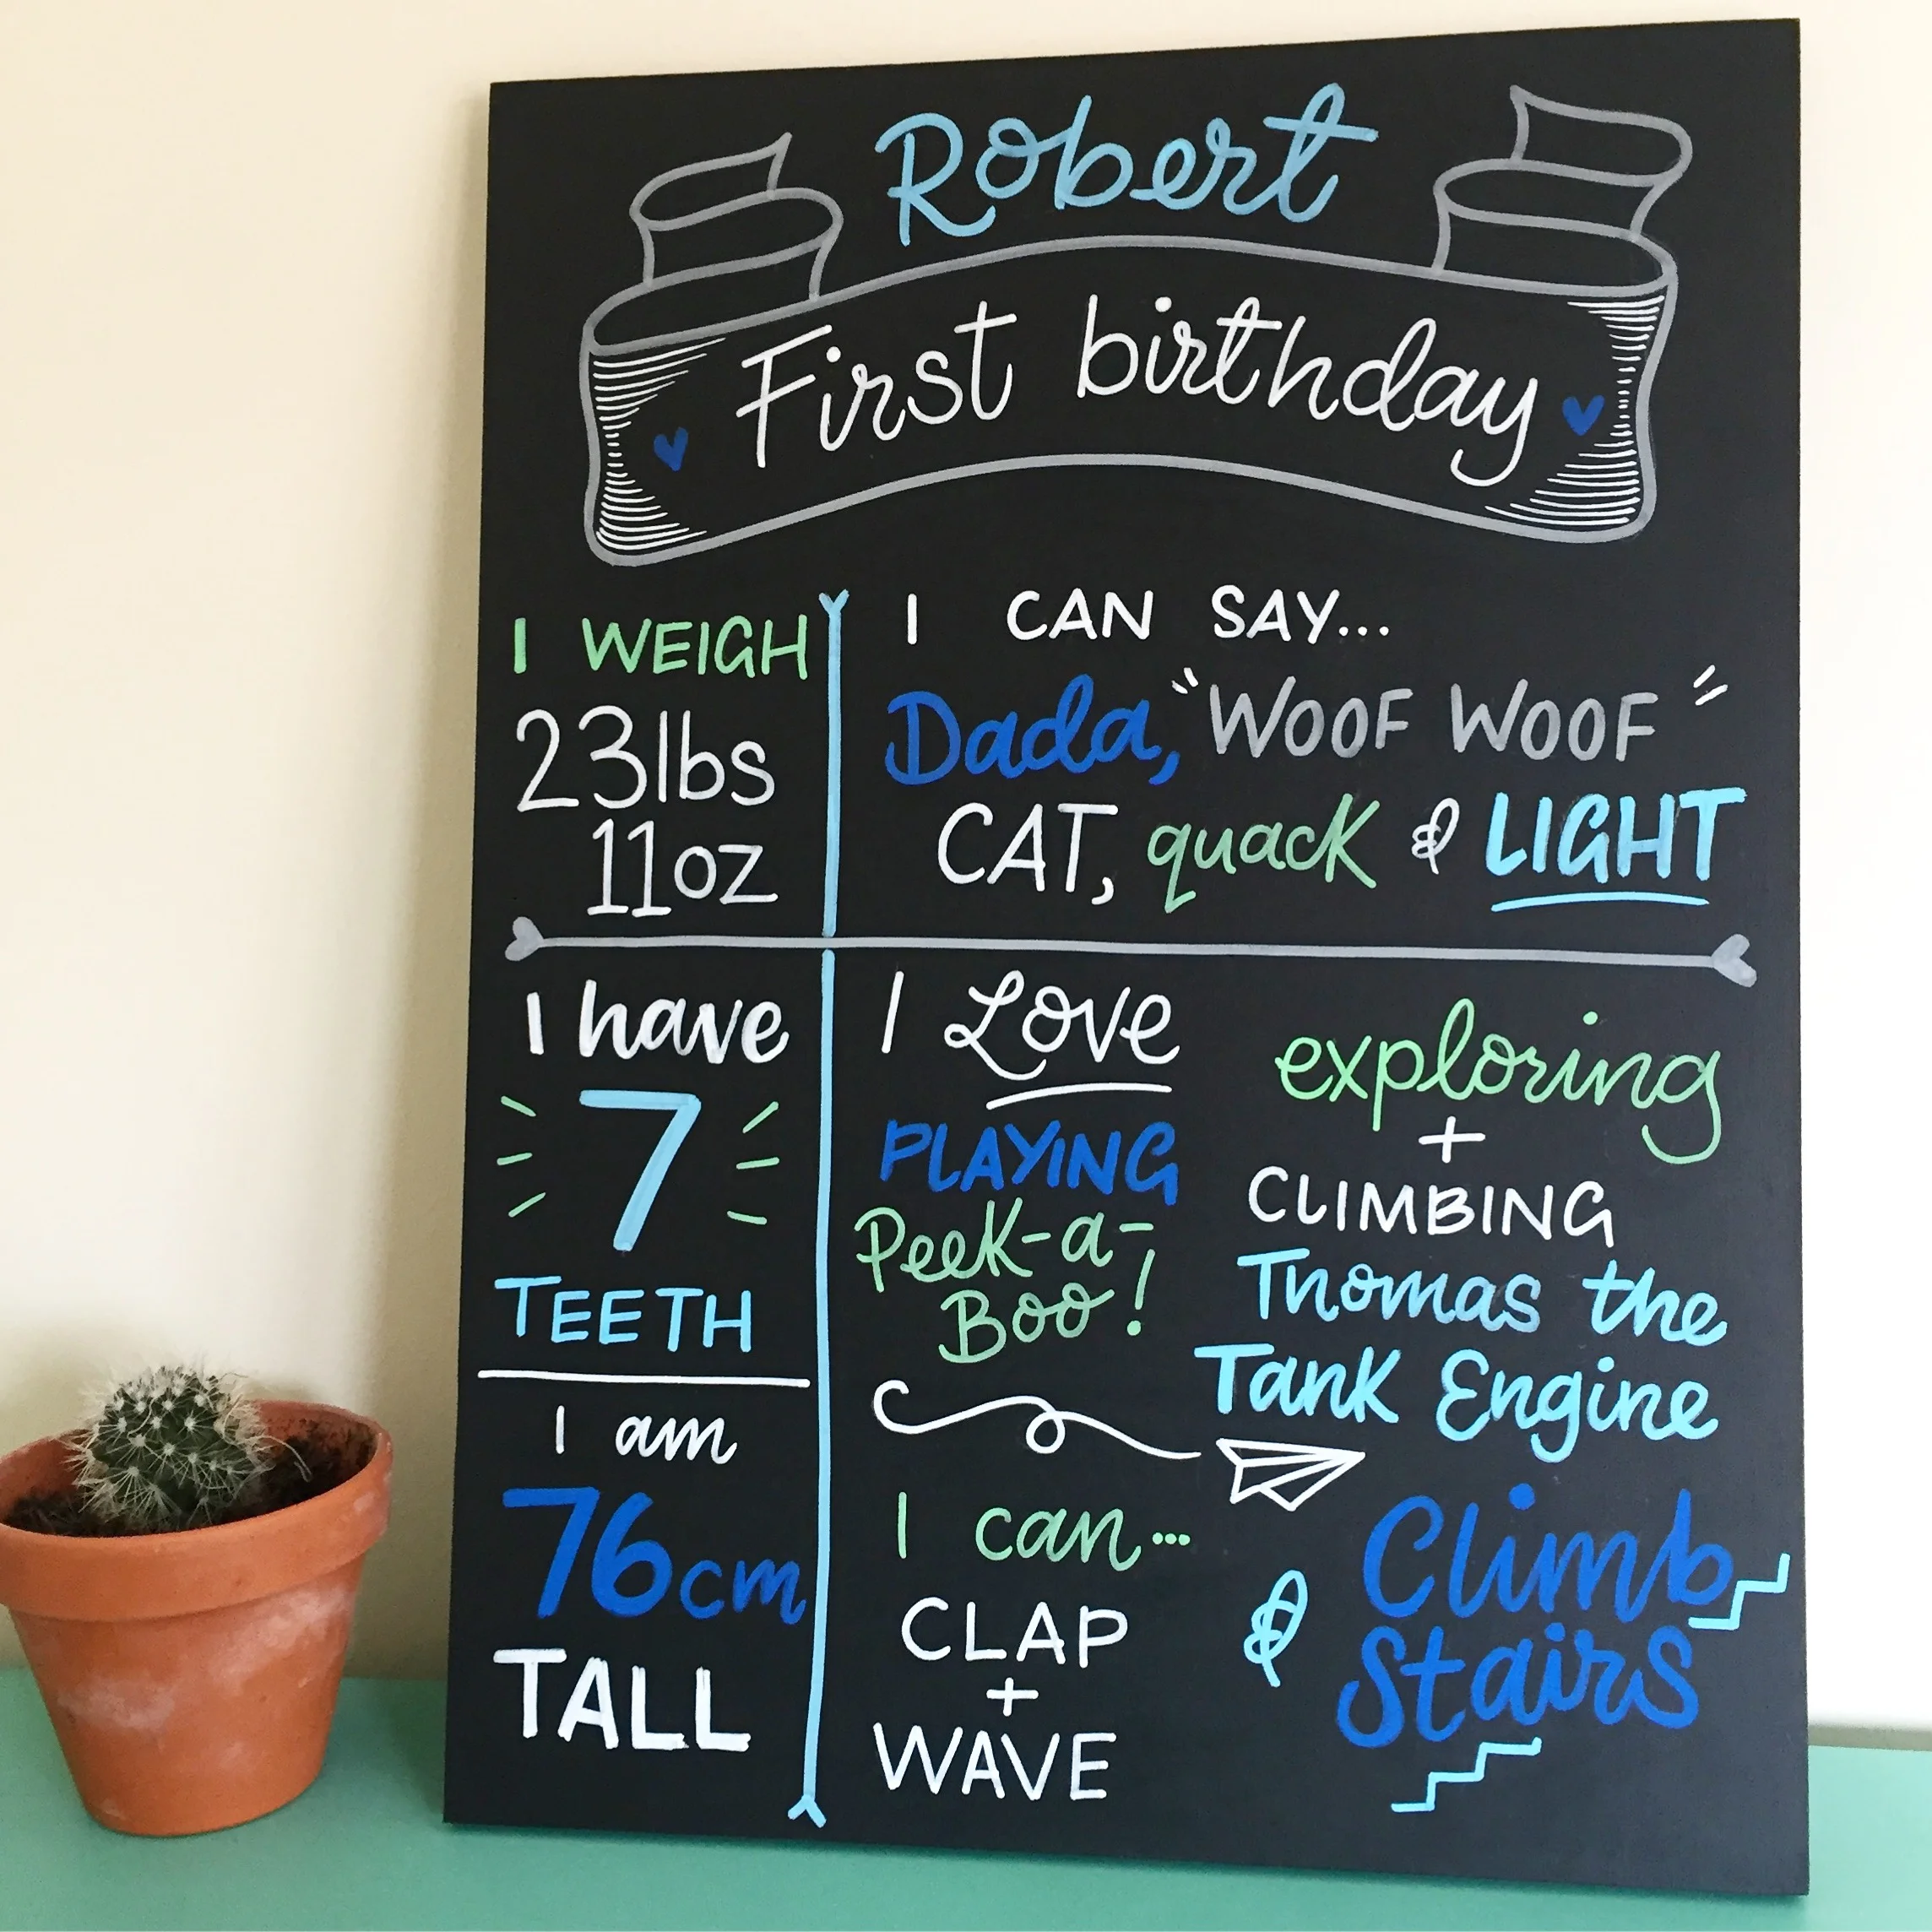 Robert
First birthday
I WEIGH
23lbs
11oz
I CAN SAY...
Dada, "WOOF WOOF"
CAT, quack & LIGHT
I have
7
TEETH
I am
76cm
TALL
I Love
PLAYING
Peek-a-
Boo!
exploring
+
CLIMBING
Thomas the
Tank Engine
I can...
CLAP
+
WAVE
& Climb
Stairs